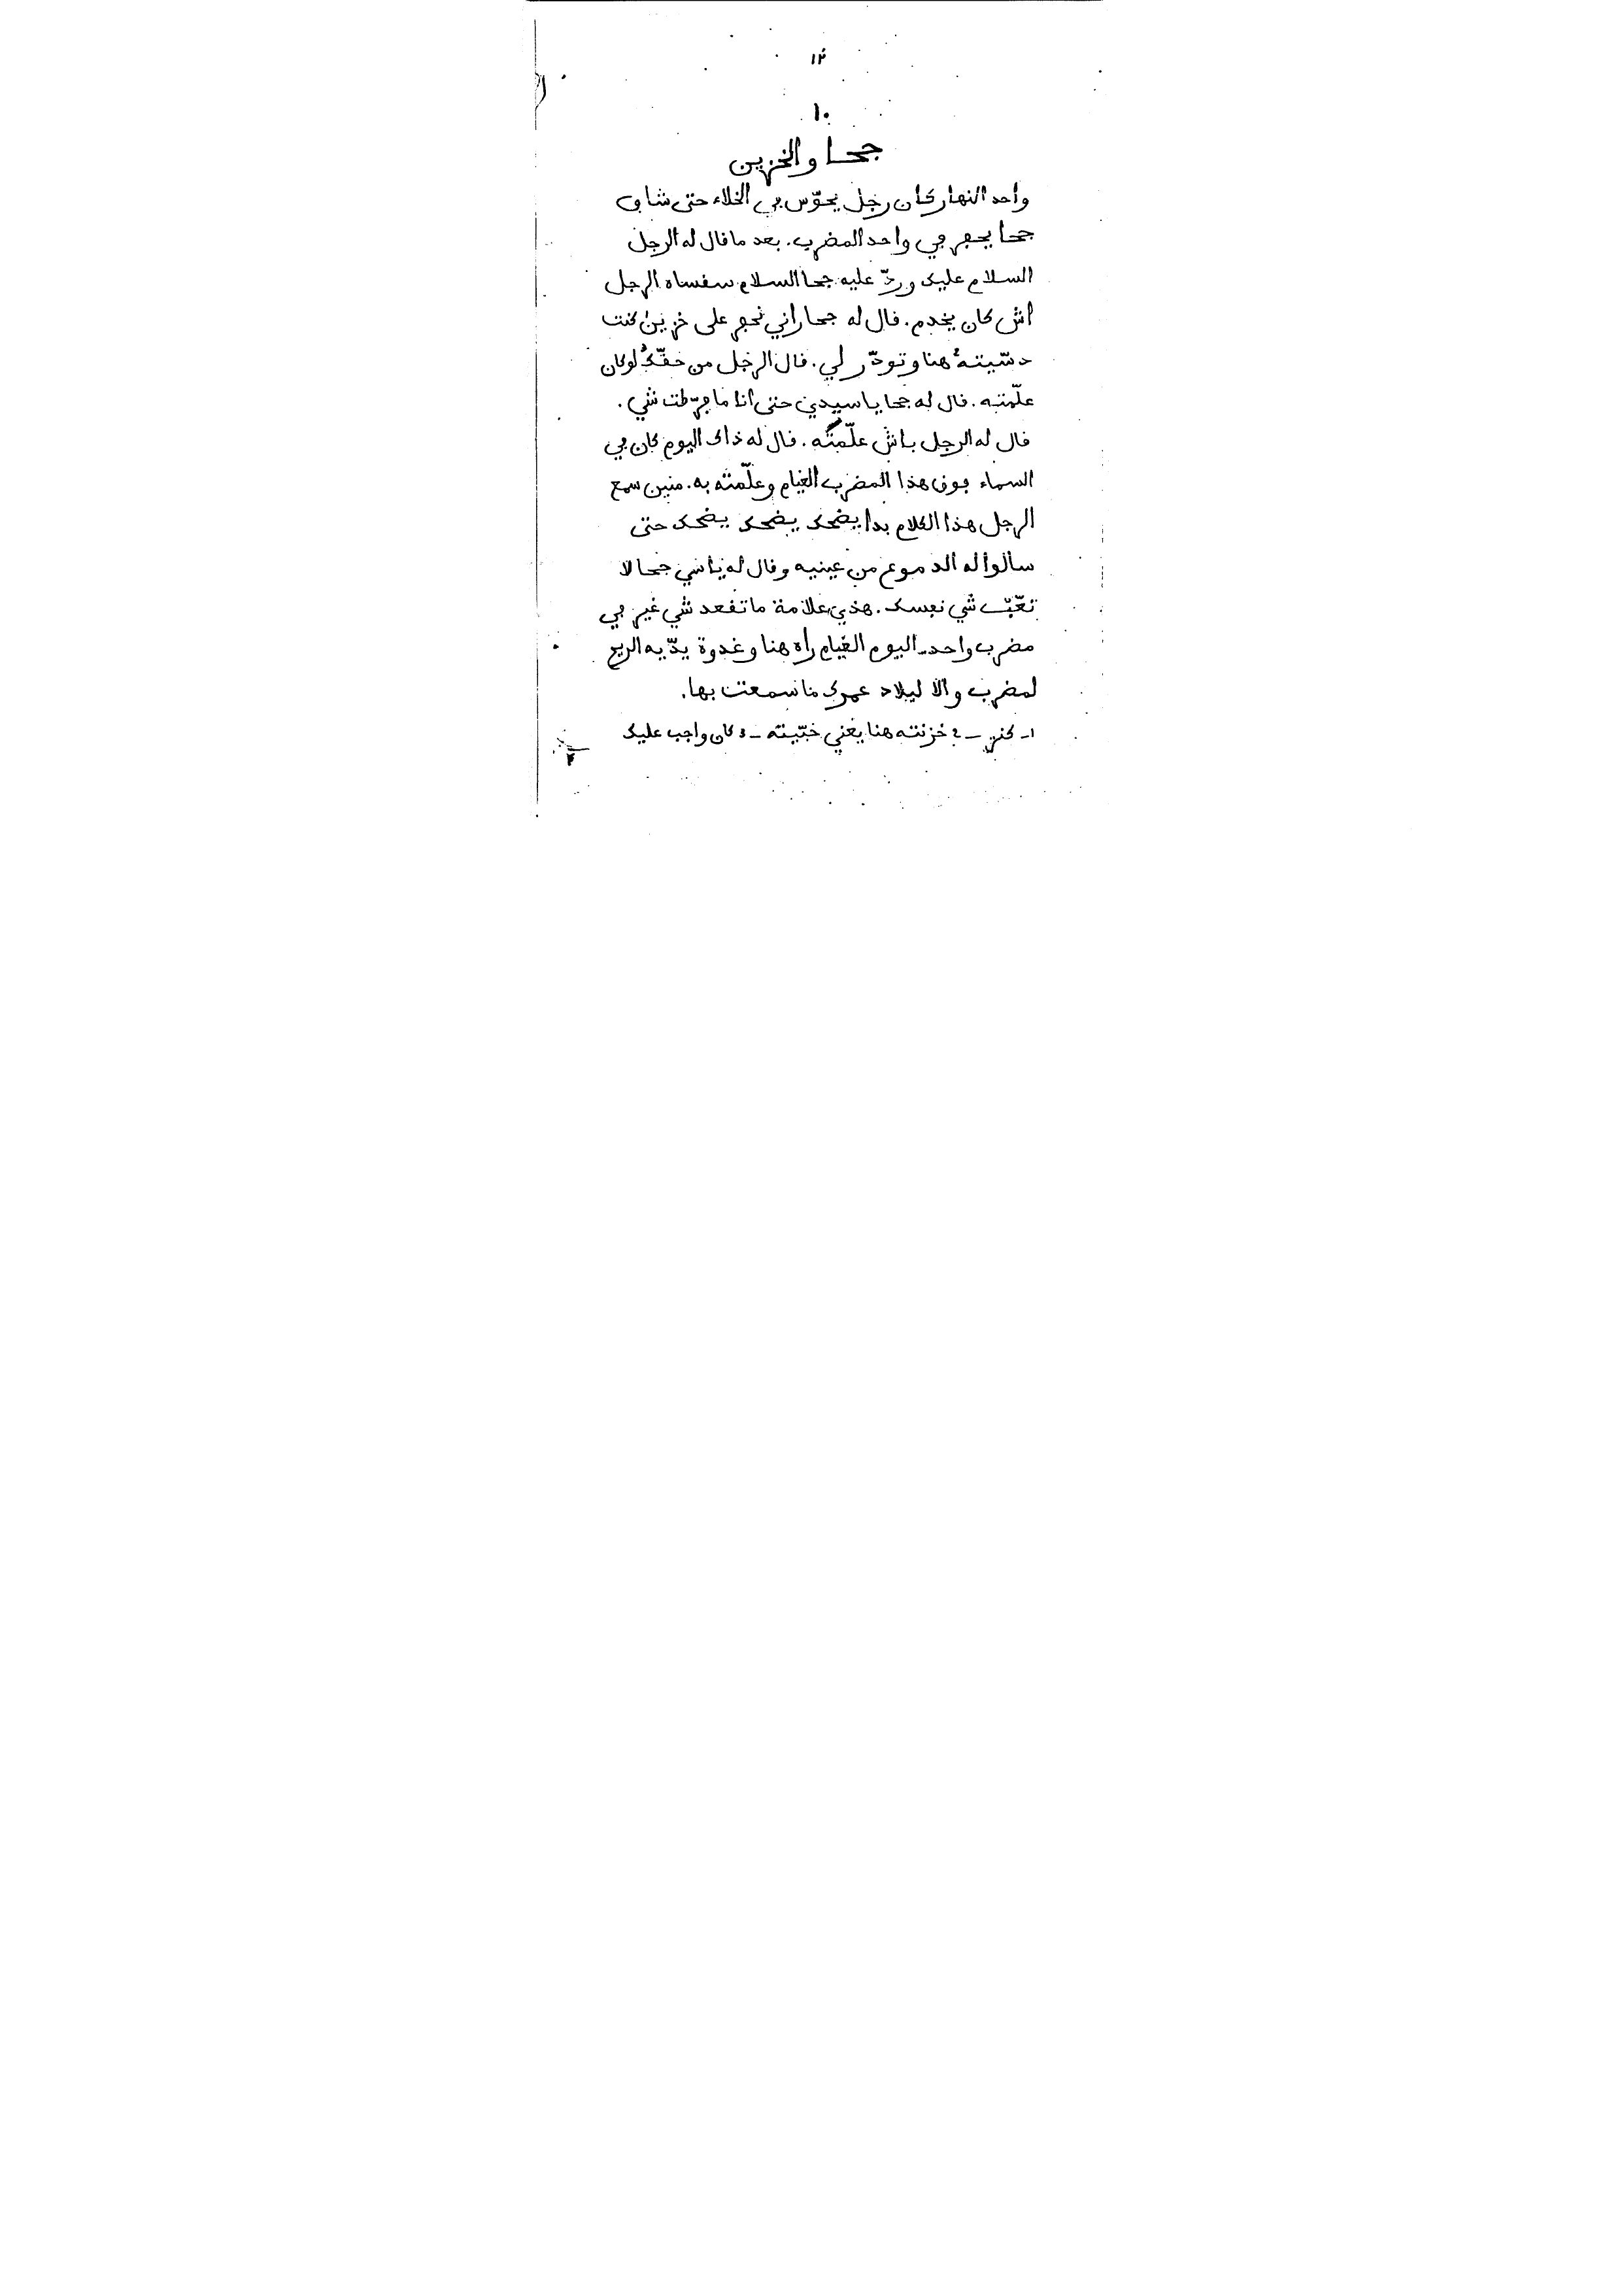 ١٢
١٠
جحا والخزين
واحد النهار كان رجل يحوّس في الخلاء حتى شاف
جحا يحفر في واحد المضرب. بعد ما قال له الرجل
السلام عليك وردّ عليه جحا السلام سقساه الرجل
اش كان يخدم. قال له جحا راني نحفر على خزين¹ كنت
دسّيته² هنا وتودّر لي. قال الرجل من حقّك³ لوكان
علّمته. قال له جحا يا سيدي حتى انا ما فرّطت شي.
قال له الرجل باش علّمته. قال له ذاك اليوم كان في
السماء فوق هذا المضرب الغيام وعلّمته به. منين سمع
الرجل هذا الكلام بدا يضحك يضحك يضحك حتى
سالوا له الدموع من عينيه وقال له يا سي جحا لا
تعّب شي نفسك. هذي علامة ما تقعد شي غير في
مضرب واحد. اليوم الغيام راه هنا وغدوة يدّيه الريح
لمضرب والا لبلاد عمرك ما سمعت بها.
١- كنز - ٢ خزنته هنا يعني خبّيته - ٣ كان واجب عليك